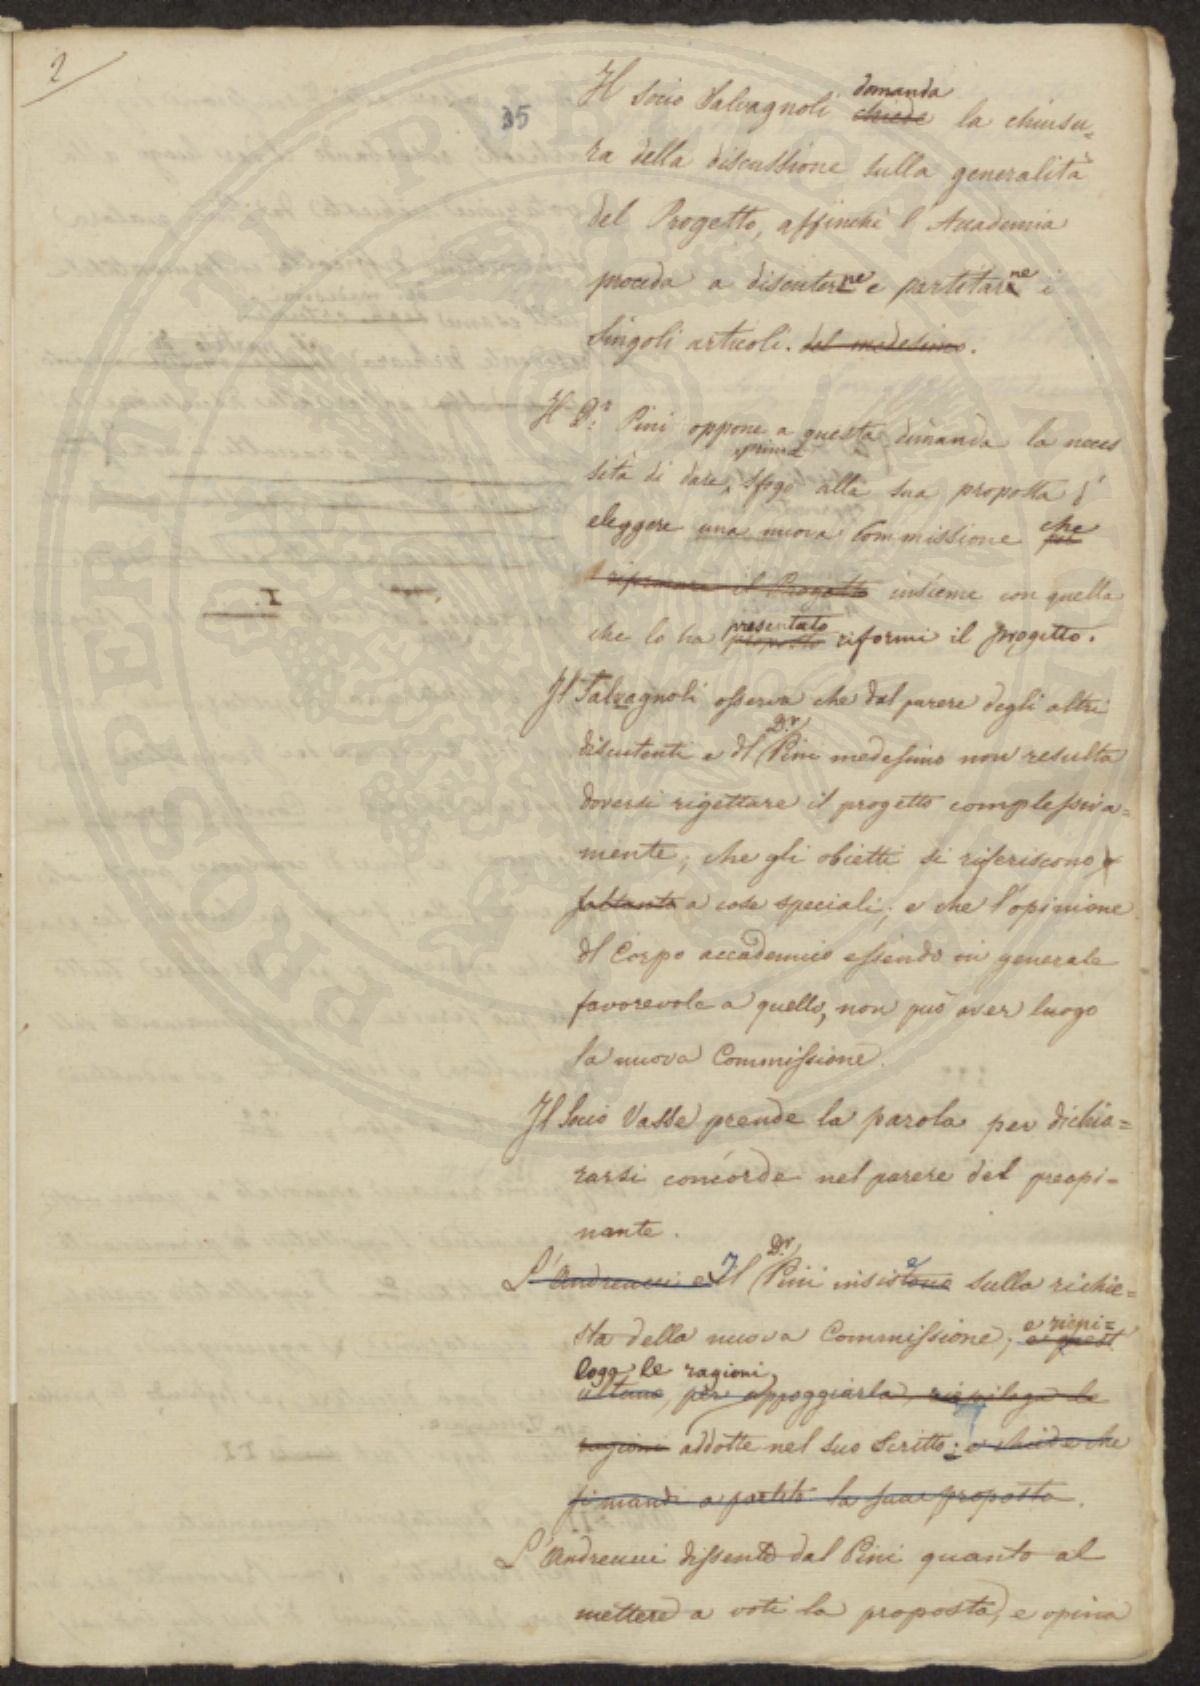 2
35
domanda
Il Socio Salvagnoli chiede la chiusu=
ra della discussione sulla generalità
del Progetto, affinchè l'Accademia
proceda a discuterne e partitarne i
singoli articoli. del medesimo.
Il D.r Pini oppone a questa dimanda la neces
prima
sità di dare, sfogo alla sua proposta d'
eleggere una nuova Commissione che
riformare il Progetto insieme con quella
presentato
che lo ha proposto riformi il progetto.
Il Salvagnoli osserva che dal parere degli altri
D.r
discutenti e dl Pini medesimo non resulta
doversi rigettare il progetto complessiva=
mente; che gli obietti si riferiscono
soltanto a cose speciali; e che l'opinione
dl Corpo accademico essendo in generale
favorevole a quello, non può aver luogo
la nuova Commissione.
Il Socio Vasse prende la parola per dichia=
rarsi concorde nel parere del preopi=
nante.
D.r
L'Andreucci e Il Pini insistone sulla richie=
e riepi=
sta della nuova Commissione; e quest
loga le ragioni
ultimo, per appoggiarla, riepiloga le
ragioni addotte nel suo Scritto; e chiede che
si mandi a partito la sua proposta.
L'Andreucci dissente dal Pini quanto al
mettere a voti la proposta, e opina
PROSPERITATI PUBLICAE